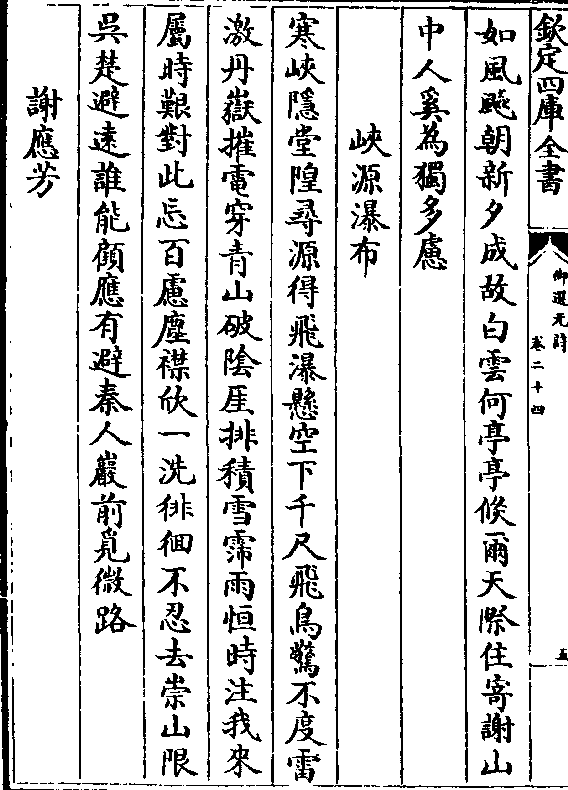 欽定四庫全書
御選元詩
卷二十四
五
如風飈朝新夕成故白雲何亭亭倐爾天際住寄謝山
中人奚為獨多慮
峽源瀑布
寒峽隱堂隍尋源得飛瀑懸空下千尺飛鳥驚不度雷
激丹嶽摧電穿青山破陰厓排積雪霈雨恒時注我來
屬時艱對此忘百慮塵襟欣一洗徘徊不忍去崇山限
吳楚避遠誰能顧應有避秦人巖前覓微路
謝應芳